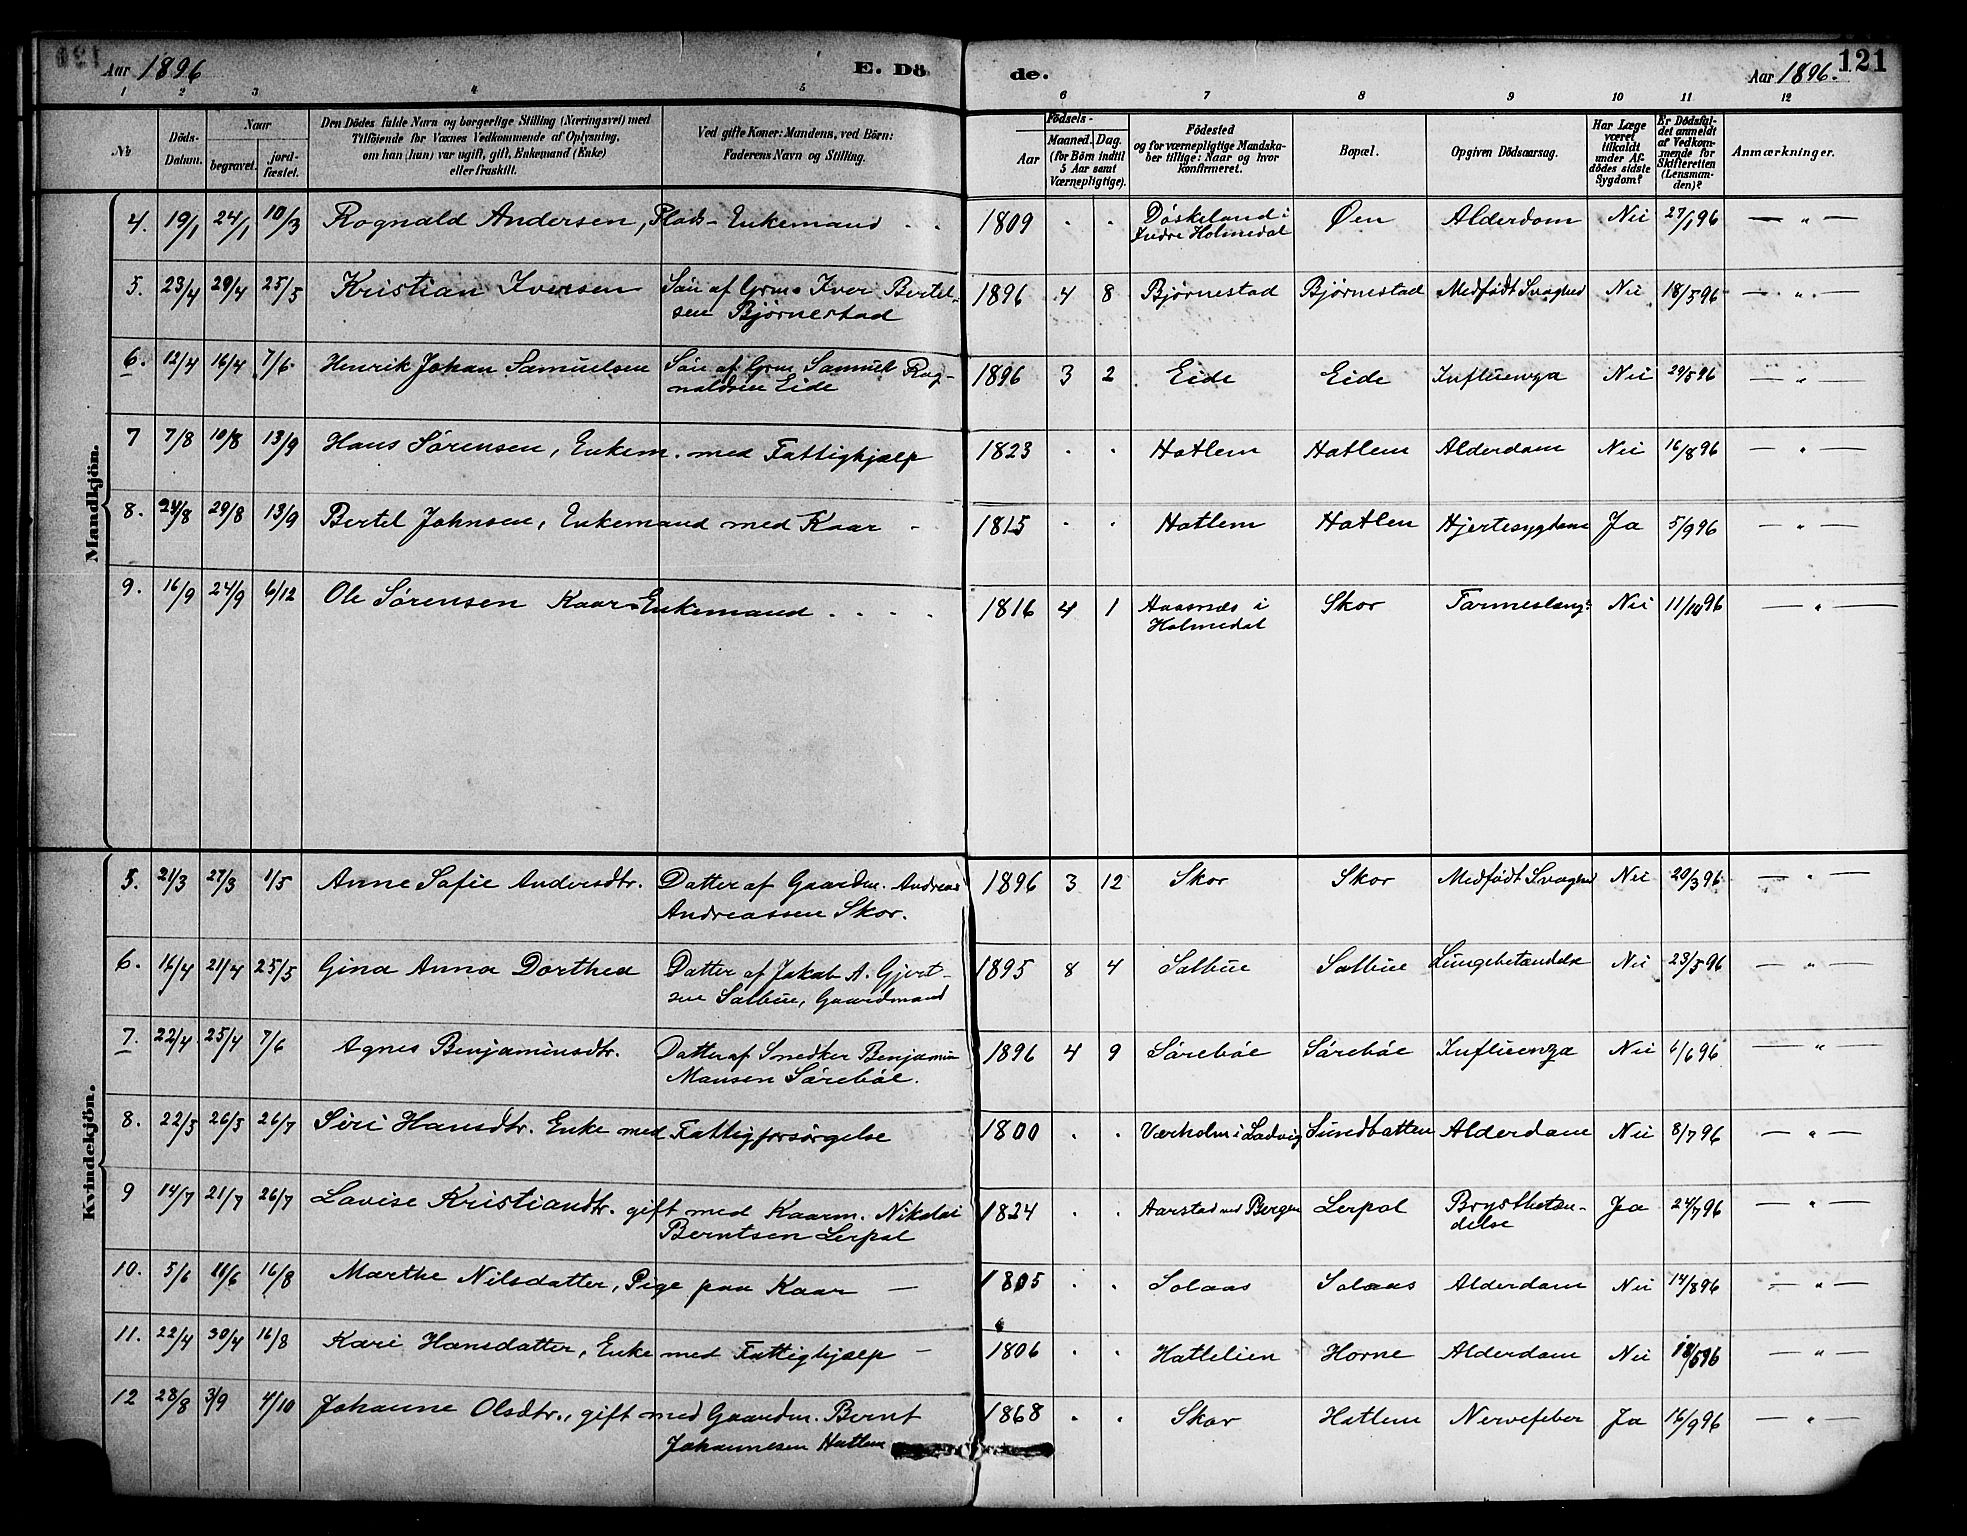 Aar 1896 E. Dö de. Aar 1896. 121
1 2 3 4 5 6 7 8 9 10 11 12
№
Döds-Datum.
Naar
begravet.
jordfæstet.
Den Dödes fulde Navn og borgerlige Stilling (Næringsvei) med
Tilföiende for Voxnes Vedkommende af Oplysning,
om han (hun) var ugift, gift, Enkemand (Enke)
eller fraskilt.
Ved gifte Koner: Mandens, ved Börn:
Faderens Navn og Stilling.
Födsels-
Aar
Maaned. Dag.
(for Börn indtil
5 Aar samt
Værnepligtige).
Födested
og for værnepligtige Mandskaber
tillige: Naar og hvor
konfirmeret.
Bopæl.
Opgiven Dödsaarsag.
Har Læge
været
tilkaldt
under Afdödes
sidste
Sygdom?
Er Dödsfaldet
anmeldt
af Vedkommende
for
Skifteretten
(Lensmanden)?
Anmærkninger.
Mandkjön.
4. 19/1 24/1 10/3 Rognald Andersen, Plads-Enkemand 1809 . . Döskeland i Øen Alderdom Nei 27/1 96 — " —
Indre Holmedal
5. 23/4 29/4 25/5 Kristian Iversen Sön af Grm. Iver Bertel- 1896 4 8 Bjørnestad Bjørnestad Medfødt Svaghed Nei 18/5 96 — " —
sen Bjørnestad
6. 12/4 16/4 7/6 Henrik Johan Samuelsen Sön af Grm Samuel Rog- 1896 3 2 Eide Eide Influenza Nei 29/5 96 — " —
naldsen Eide
7 7/8 10/8 13/9 Hans Sørensen, Enkem. med Fattighjælp 1823 . . Hatlem Hatlem Alderdom Nei 16/8 96 — " —
8. 24/8 29/8 13/9 Bertel Johnsen, Enkemand med Kaar - 1815 . . Hatlem Hatlem Hjertesygdom Ja 5/9 96 — " —
9. 16/9 24/9 6/12 Ole Sørensen Kaar-Enkemand . . . . 1816 4 1 Aasnæs i Skor Tarmeslyng Nei 11/10 96 — " —
Holmedal
Kvindekjön.
5. 21/3 27/3 1/5 Anne Sofie Andersdtr. Datter af Gaardm. Andreas 1896 3 12 Skor Skor Medfødt Svaghed Nei 20/3 96 — " —
Andreassen Skor.
6. 16/4 21/4 25/5 Gina Anna Dorthea Datter af Jakob A. Gjert- 1895 8 4 Salbue Salbue Lungebetændelse Nei 23/5 96 — " —
sen Salbue, Gaardmand
7. 22/4 25/4 7/6 Agnes Benjaminsdtr. Datter af Snedker Benjamin 1896 4 9 Sørebøe Sørebøe Influenza Nei 6/6 96 — " —
Monsen Sørebøe.
8. 22/3 26/3 26/7 Siri Hansdtr. Enke med Fattigforsørgelse 1800 . . Værholm i Ladvig Sundbotten Alderdom Nei 8/7 96 — " —
9 14/7 21/7 26/7 Lovise Kristiandtr. gift med Kaarm. Nikolai 1824 . . Aarstad ved Bergen Lerpol Brystbetæn- Ja 24/7 96 — " —
Berntsen Lerpol delse
10. 5/6 11/6 16/8 Marthe Nilsdatter, Pige paa Kaar — 1805 . . Solaas Solaas Alderdom Nei 14/8 96 — " —
11. 22/4 30/4 16/8 Kari Hansdatter, Enke med Fattighjælp — 1806 . . Hattelien Horne Alderdom Nei 18/5 96 — " —
12 28/8 3/9 4/10 Johanne Olsdtr., gift med Gaardm. Bernt 1868 . . Skor Hatlem Nervefeber Ja 16/9 96 — " —
Johannesen Hatlem